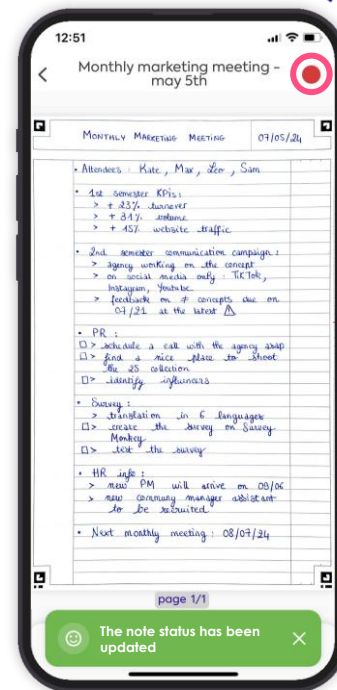 12:51
Monthly marketing meeting -
may 5th
MONTHLY MARKETING MEETING 07/05/24
• Attendees : Kate, Max, Leo, Sam
• 1st semester KPIs :
> + 23% turnover
> + 31% volume
> + 15% website traffic
• 2nd semester communication campaign :
> agency working on the concept
> on social media only : TikTok,
Instagram, Youtube.
> feedback on ≠ concepts due on
07/21 at the latest ⚠
• PR :
□> schedule a call with the agency asap
□> find a nice place to shoot
the 25 collection
□> identify influencers
• Survey :
> translation in 6 languages
□> create the survey on Survey
Monkey
□> test the survey
• HR info :
> new PM will arrive on 09/06
> new community manager assistant
to be recruited
• Next monthly meeting : 08/07/24
page 1/1
The note status has been
updated